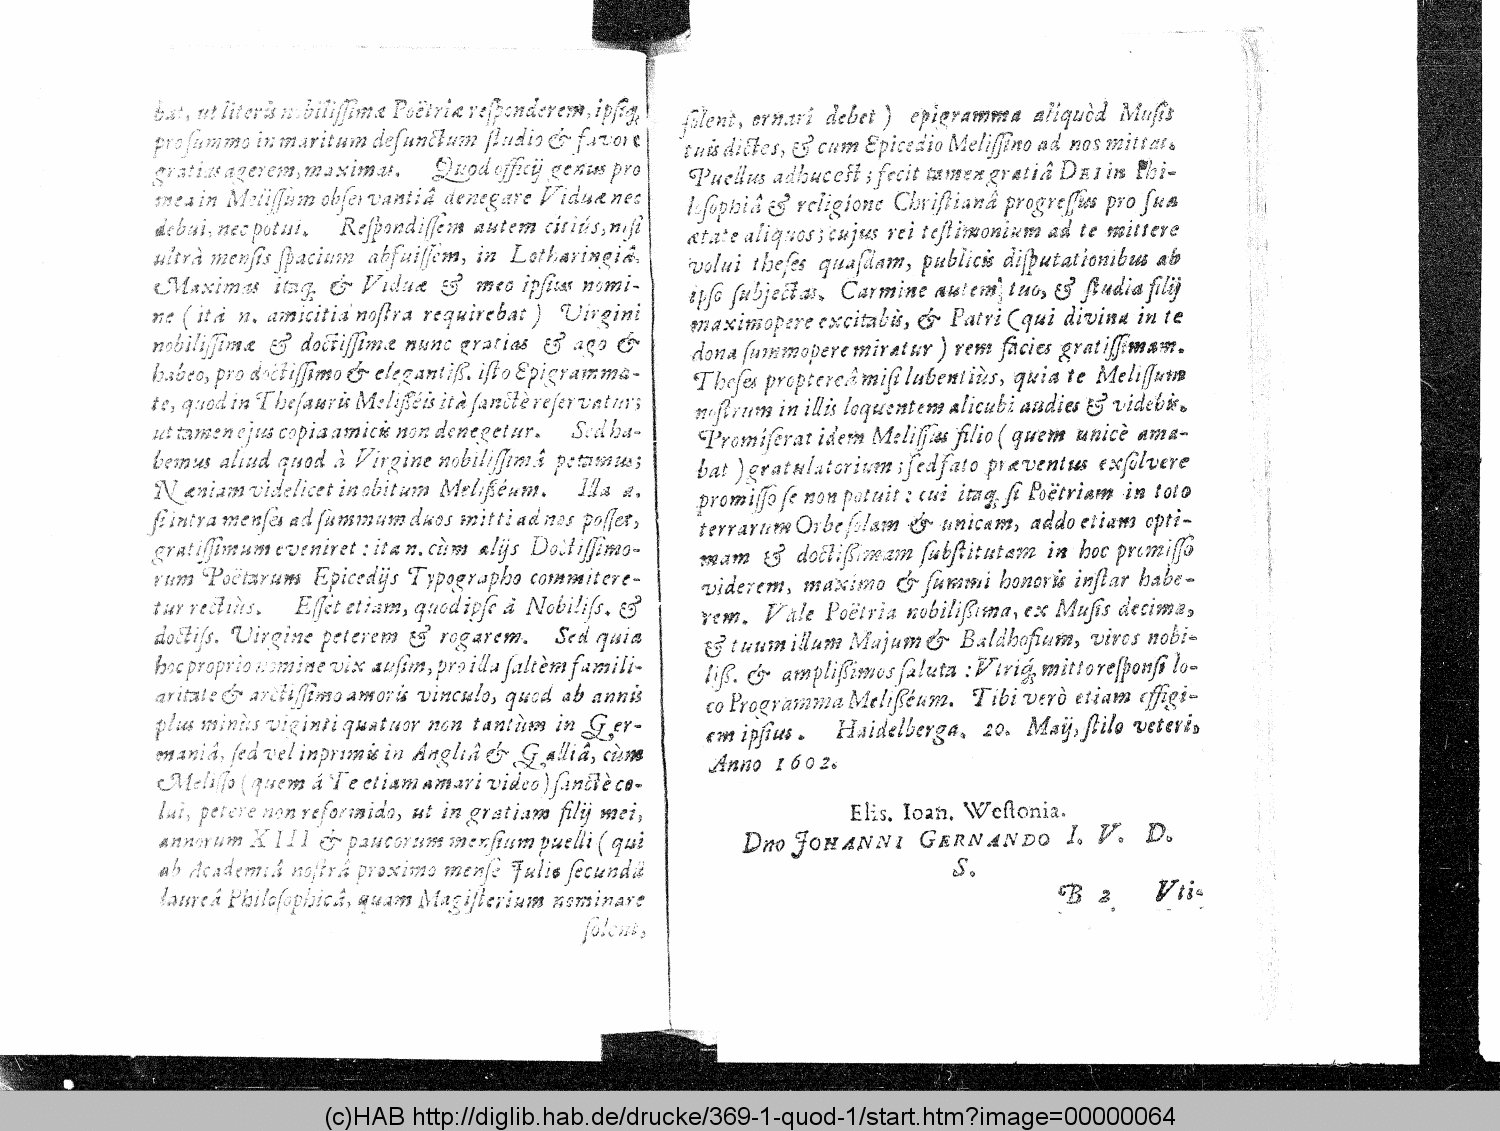 bat, ut literis nobilissimæ Poëtriæ responderem, ipsiq;
pro summo in maritum defunctum studio & favore
gratias agerem, maximas. Quod officij genus pro
mea in Melissum observantiâ denegare Viduæ nec
debui, nec potui. Respondissem autem citiùs, nisi
ultrà mensis spacium abfuissem, in Lotharingiâ.
Maximas itaq; & Viduæ & meo ipsius nomi-
ne (ità n. amicitia nostra requirebat) Virgini
nobilissimæ & doctissimæ nunc gratias & ago &
habeo, pro doctissimo & elegantiß. isto Epigramma-
te, quod in Thesauris Melisséis ità sanctè reservatur;
ut tamen ejus copia amicis non denegetur. Sed ha-
bemus aliud quod à Virgine nobilissimâ petamus;
Næniam videlicet in obitum Melißéum. Illa a.
si intra menses ad summum duos mitti ad nos posset,
gratissimum eveniret: ita n. cùm alijs Doctissimo-
rum Poëtarum Epicedijs Typographo committere-
tur rectiùs. Esset etiam, quod ipse à Nobiliss. &
doctiss. Virgine peterem & rogarem. Sed quia
hoc proprio nomine vix ausim, pro illa saltèm famili-
aritate & arctissimo amoris vinculo, quod ab annis
plus minùs viginti quatuor non tantùm in Ger-
maniâ, sed vel inprimis in Angliâ & Galliâ, cùm
Melisso (quem á Te etiam amari video) sanctè co-
lui, petere non reformido, ut in gratiam filij mei,
annorum XIII & paucorum mensium puelli (qui
ab Academiâ nostrâ proximo mense Julio secundâ
laureâ Philosophicâ, quam Magisterium nominare
solent,
solent, ornari debet) epigramma aliquòd Musis
tuis dictes, & cum Epicedio Melissino ad nos mittas.
Puellus adhuc est; fecit tamen gratiâ DEI in Phi-
losophiâ & religione Christianâ progressus pro sua
ætate aliquos; cujus rei testimonium ad te mittere
volui theses quasdam, publicis disputationibus ab
ipso subjectas. Carmine autem tuo, & studia filij
maximopere excitabis, & Patri (qui divina in te
dona summopere miratur) rem facies gratissimam.
Theses proptereà misi lubentiùs, quia te Melissum
nostrum in illis loquentem alicubi audies & videbis.
Promiserat idem Melissus filio (quem unicè ama-
bat) gratulatorium; sed fato præventus exsolvere
promisso se non potuit: cui itaq; si Poëtriam in toto
terrarum Orbe solam & unicam, addo etiam opti-
mam & doctißimam substitutam in hoc promisso
viderem, maximo & summi honoris instar habe-
rem. Vale Poëtria nobilißima, ex Musis decima,
& tuum illum Majum & Baldhofium, viros nobi-
liß. & amplißimos saluta: Vtriq; mitto responsi lo-
co Programma Melißéum. Tibi verò etiam effigi-
em ipsius. Haidelberga, 20. Maij, stilo veteri,
Anno 1602.
Elis. Ioan. Westonia.
Dno JOHANNI GERNANDO I. V. D.
S.
B 2 Vti-
(c)HAB http://diglib.hab.de/drucke/369-1-quod-1/start.htm?image=00000064